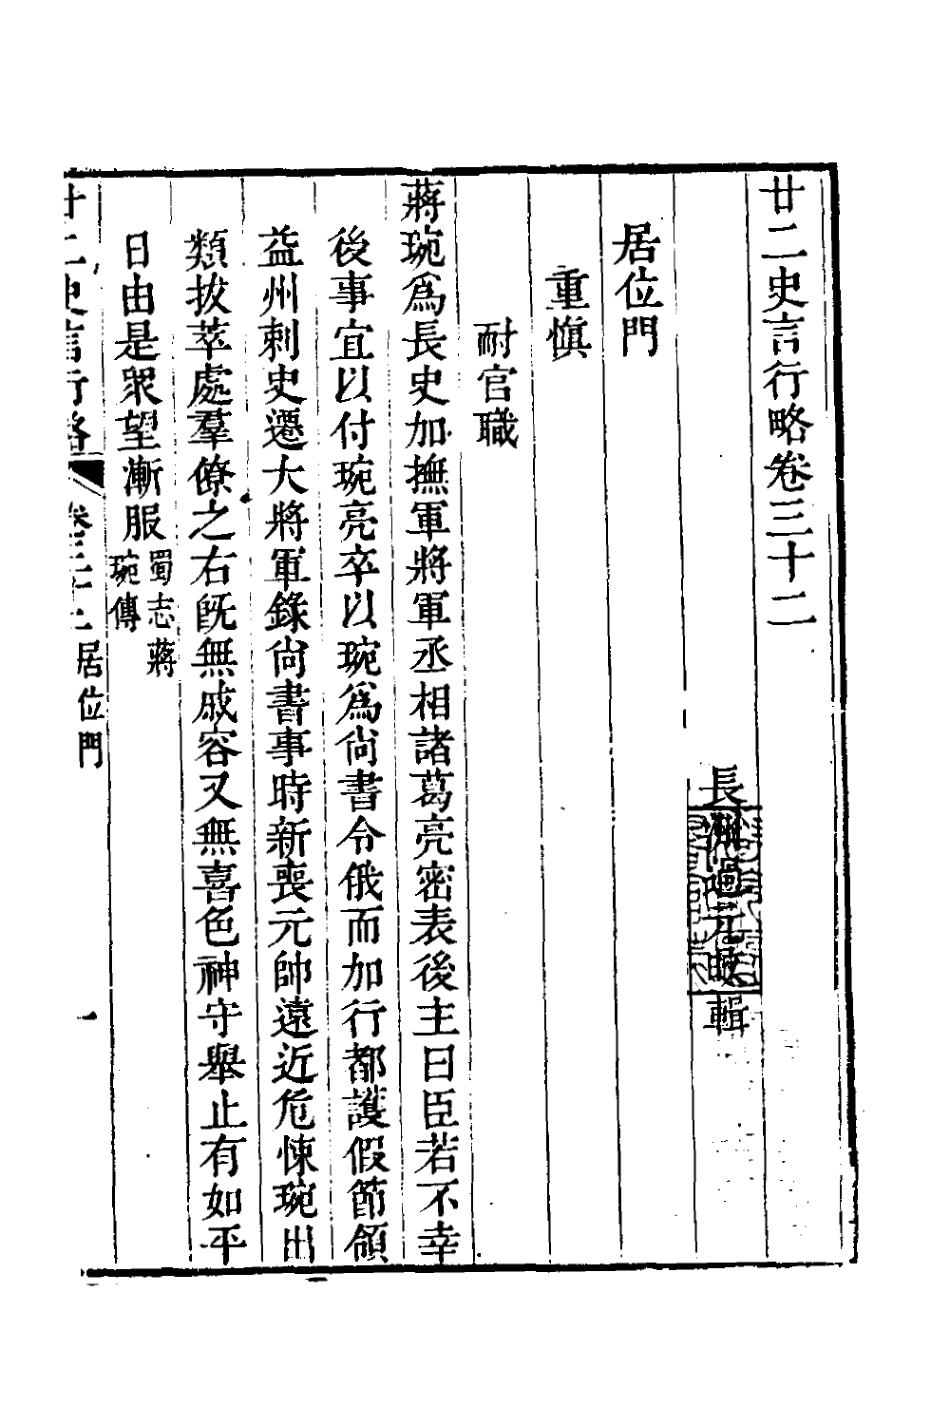 廿二史言行略卷三十二
長洲過元㫤輯
居位門
重愼
耐官職
蔣琬爲長史加撫軍將軍丞相諸葛亮密表後主曰臣若不幸
後事宜以付琬亮卒以琬爲尙書令俄而加行都護假節領
益州刺史遷大將軍錄尙書事時新喪元帥遠近危悚琬出
類拔萃處羣僚之右旣無戚容又無喜色神守舉止有如平
日由是衆望漸服
蜀志蔣
琬傳
廿二史言行略 卷三十二 居位門 一